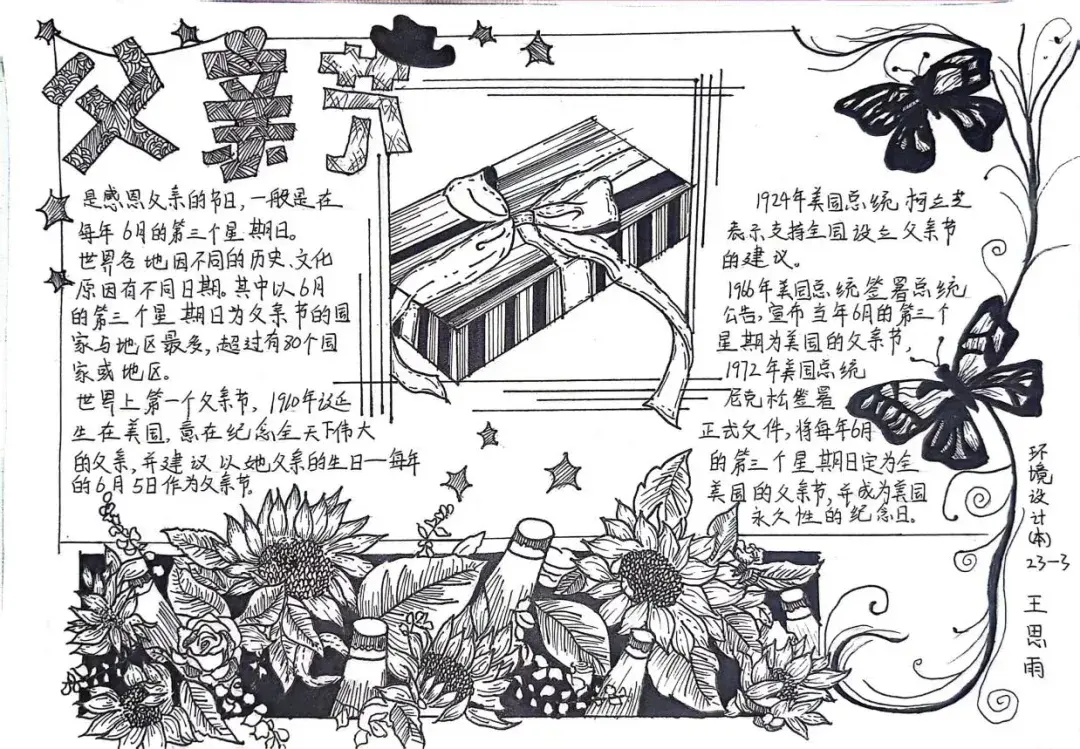 父亲节
是感恩父亲的节日，一般是在
每年6月的第三个星期日。
世界各地因不同的历史、文化
原因有不同日期。其中以6月
的第三个星期日为父亲节的国
家与地区最多，超过有80个国
家或地区。
世界上第一个父亲节，1910年诞
生在美国，意在纪念全天下伟大
的父亲，并建议以她父亲的生日一每年
的6月5日作为父亲节。
1924年美国总统柯立芝
表示支持全国设立父亲节
的建议。
1966年美国总统签署总统
公告，宣布当年6月的第三个
星期为美国的父亲节，
1972年美国总统
尼克松签署
正式文件，将每年6月
的第三个星期日定为全
美国的父亲节，并成为美国
永久性的纪念日。
环境设计(本)23-3 王思雨